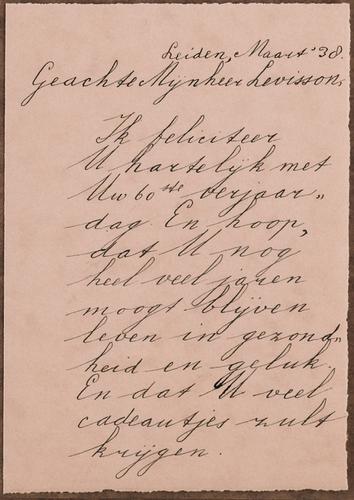 Leiden, Maart '38.
Geachte Mijnheer Levisson,
Ik feliciteer
U hartelijk met
Uw 60ste verjaar„
dag. En hoop,
dat U nog
heel veel jaren
moogt blijven
leven in gezond„
heid en geluk
En dat U veel
cadeautjes zult
krijgen.